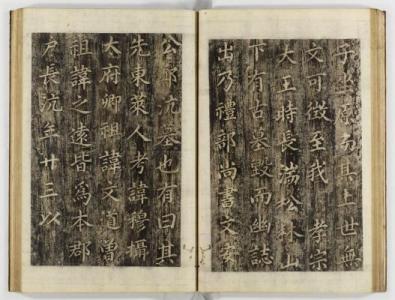 其上世無
文可徵至我 孝宗
大王時長湍松林山
下有古墓毀而幽誌
出乃禮部尚書文安
公鄭沆墓也有曰其
先東萊人考諱穆攝
大府卿祖諱文道曾
祖諱之遠皆爲本郡
戶長沆年廿三以